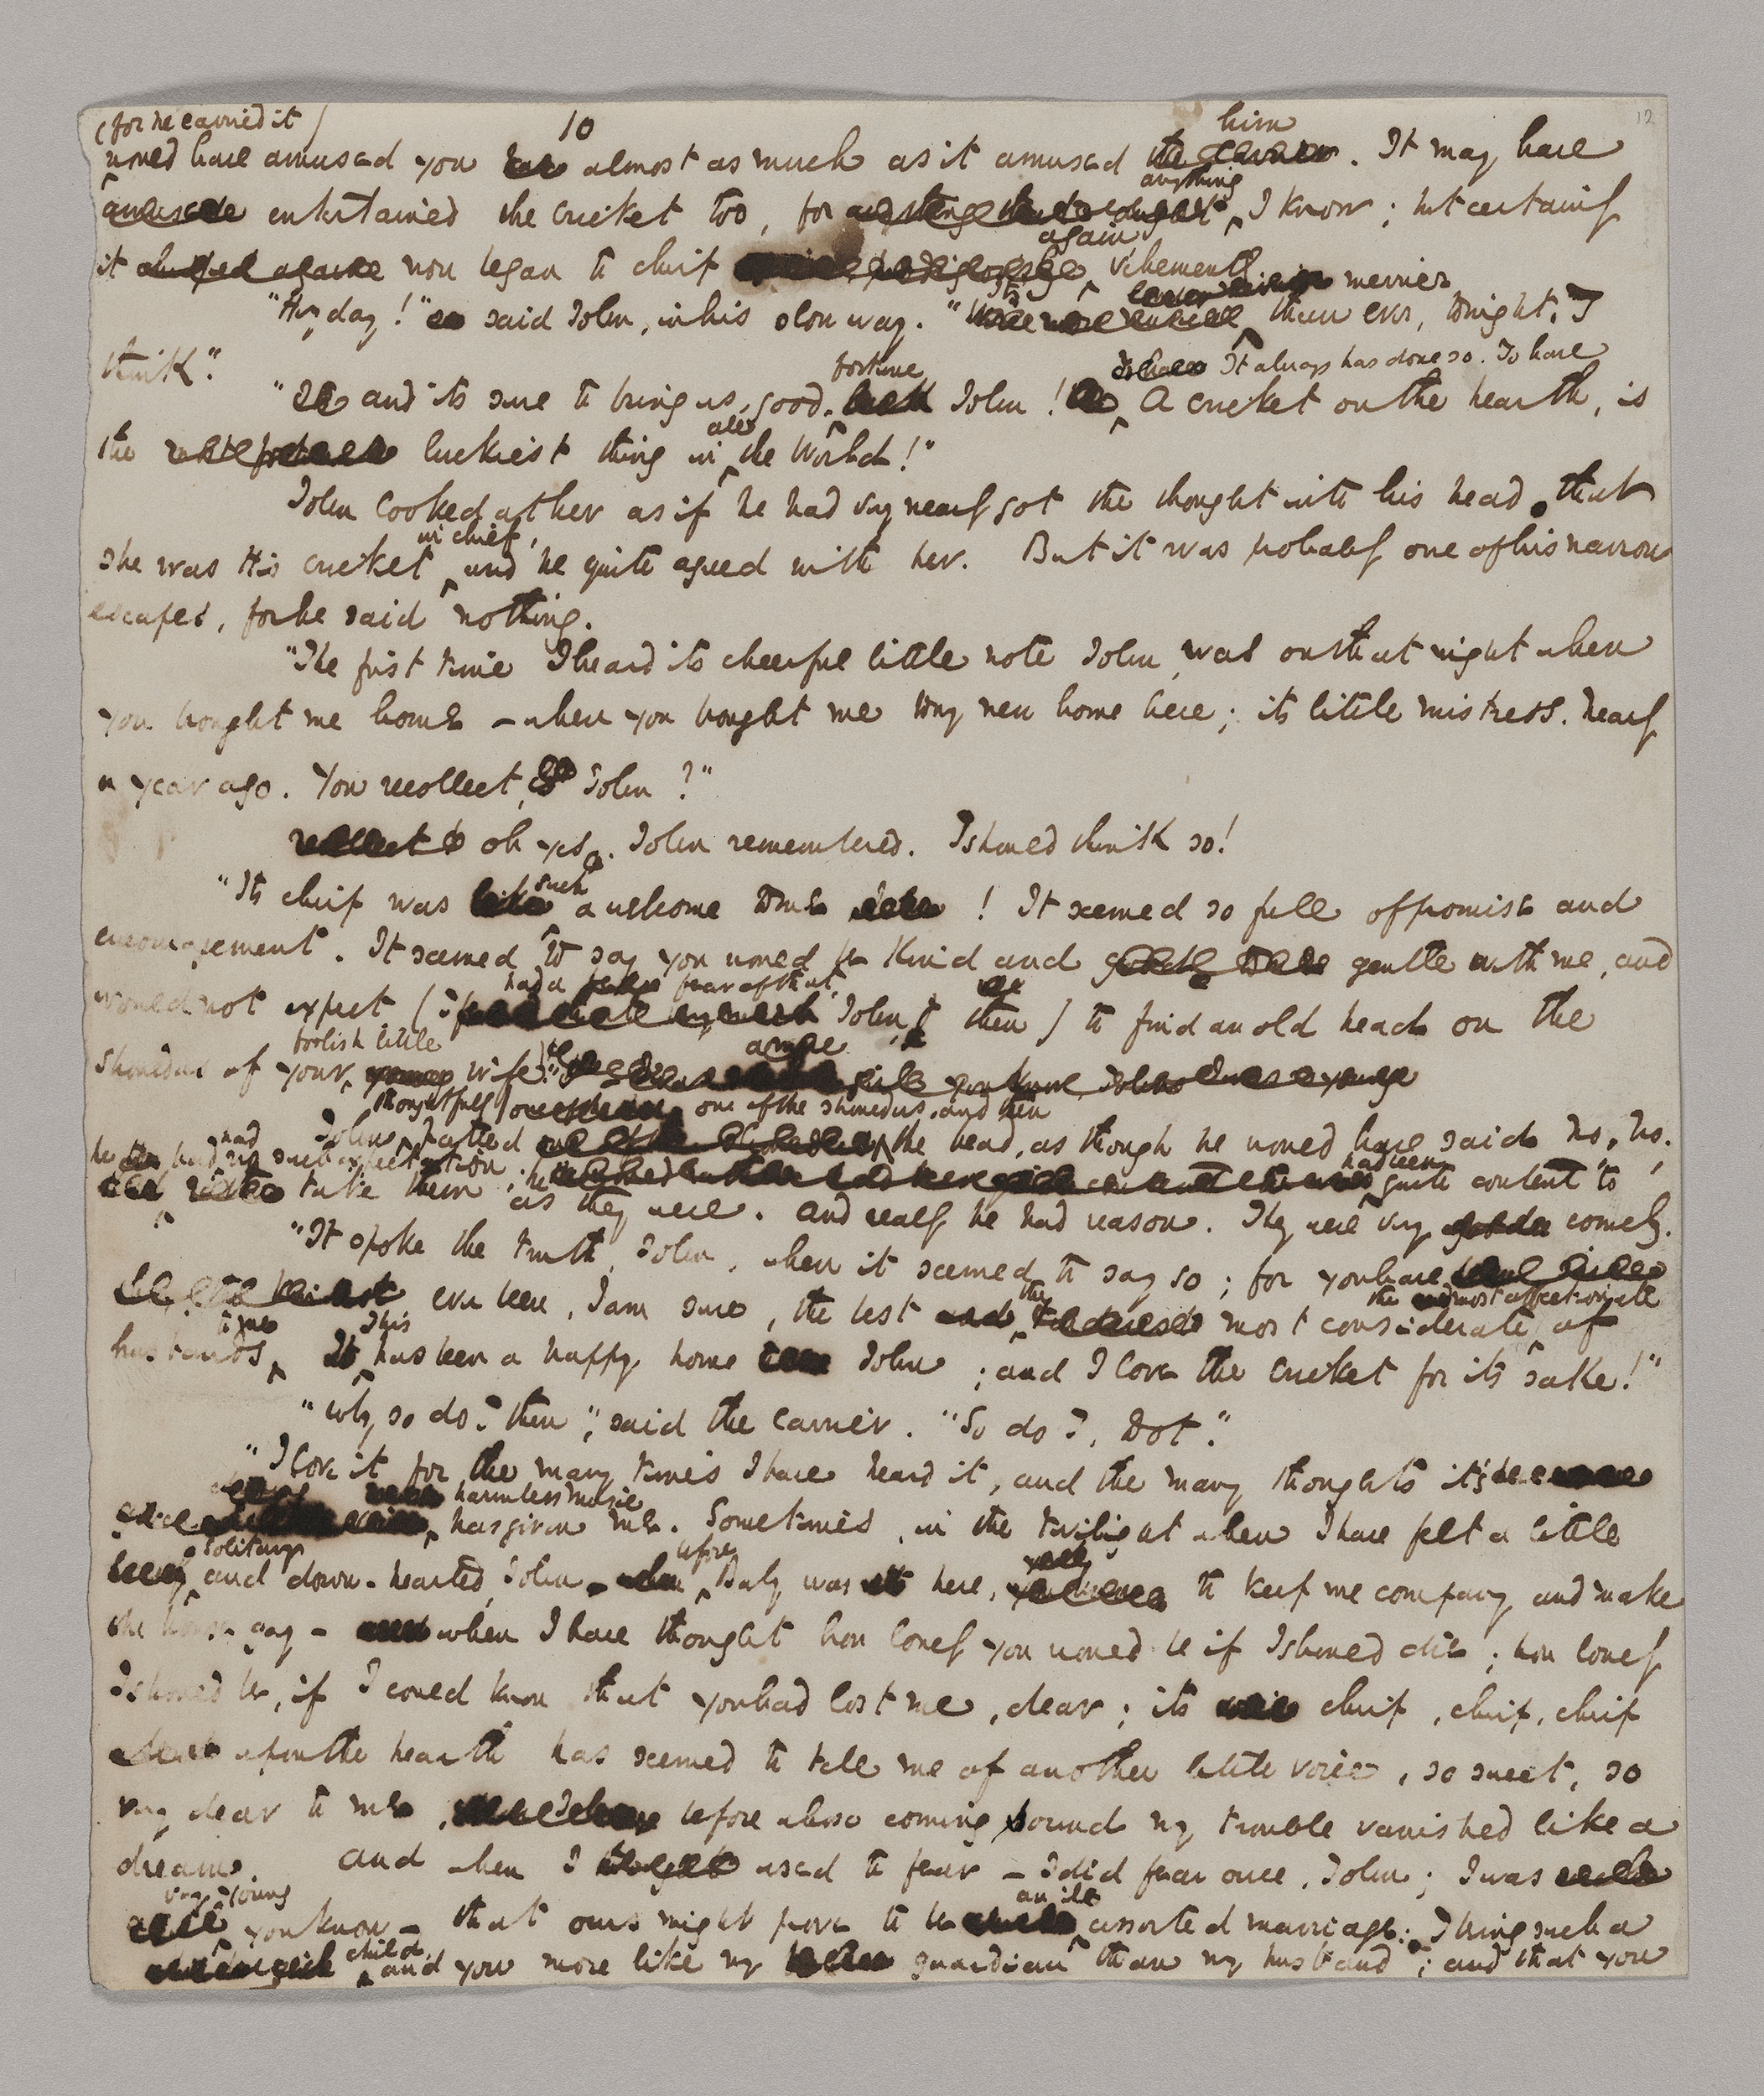 (for he carried it)
10
12
him
would have amused you almost as much as it amused the Carrier. It may have
anything
amused entertained the Cricket too, for I know; but certainly
again
it chirped again now began to chirp vehemently.
merrier
"Heyday!" said John, in his slow way. "It's than ever, tonight, I
think."
fortune
It always has done so. To have
"And it's sure to bring us good luck John! A Cricket on the hearth, is
all
the luckiest thing in the World!"
John looked at her as if he had very nearly got the thought into his head that
in chief,
she was His cricket and he quite agreed with her. But it was probably one of his narrow
escapes, for he said nothing.
"The first time I heard its cheerful little note John, was on that night when
you brought me home – when you brought me to my new home here; its little mistress. Nearly
a year ago. You recollect, John?"
recollect Oh yes. John remembered. I should think so!
such
"Its chirp was like a welcome to me! It seemed so full of promise and
encouragement. It seemed to say you would be kind and gentle with me, and
had a fear of that,
would not expect (I John, then) to find an old head on the
foolish little
shoulders of your young wife."
thoughtfully one of the shoulders, and then
John patted the head, as though he would have said No, No.
he had had no such expectation; he had been quite content to
take them as they were. And really he had reason. They were very comely.
"It spoke the truth, John, when it seemed to say so; for you have
the the most affectionate
ever been, I am sure, the best and most considerate, of
to me This
husbands. It has been a happy home John; and I love the Cricket for its sake!"
"Why, so do I then," said the Carrier. "So do I, Dot."
"I love it for the many times I have heard it, and the many thoughts its
harmless music
has given me. Sometimes, in the twilight when I have felt a little
solitary before
and down-hearted, John – when Baby was here, to keep me company and make
the house gay – when I have thought how lonely you would be if I should die; how lonely
I should be, if I could know that you had lost me, dear; its chirp, chirp, chirp
upon the hearth has seemed to tell me of another little voice, so sweet, so
very dear to me, before whose coming sound my trouble vanished like a
dream. And when I used to fear – I did fear once, John; I was
very young an ill
you know – that ours might prove to be assorted marriage: I being such a
child, and you more like my guardian than my husband; and that you